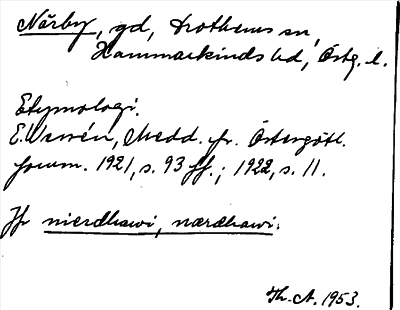 Närby, gd, Drothems sn,
Hammarkinds hd, Östg. l.
Etymologi.
E. Wessén, Medd. fr. Östergötl.
fornm. 1921, s. 93 ff.; 1922, s. 11.
Jfr nierdhawi, nærdhawi.
Th. A. 1953.